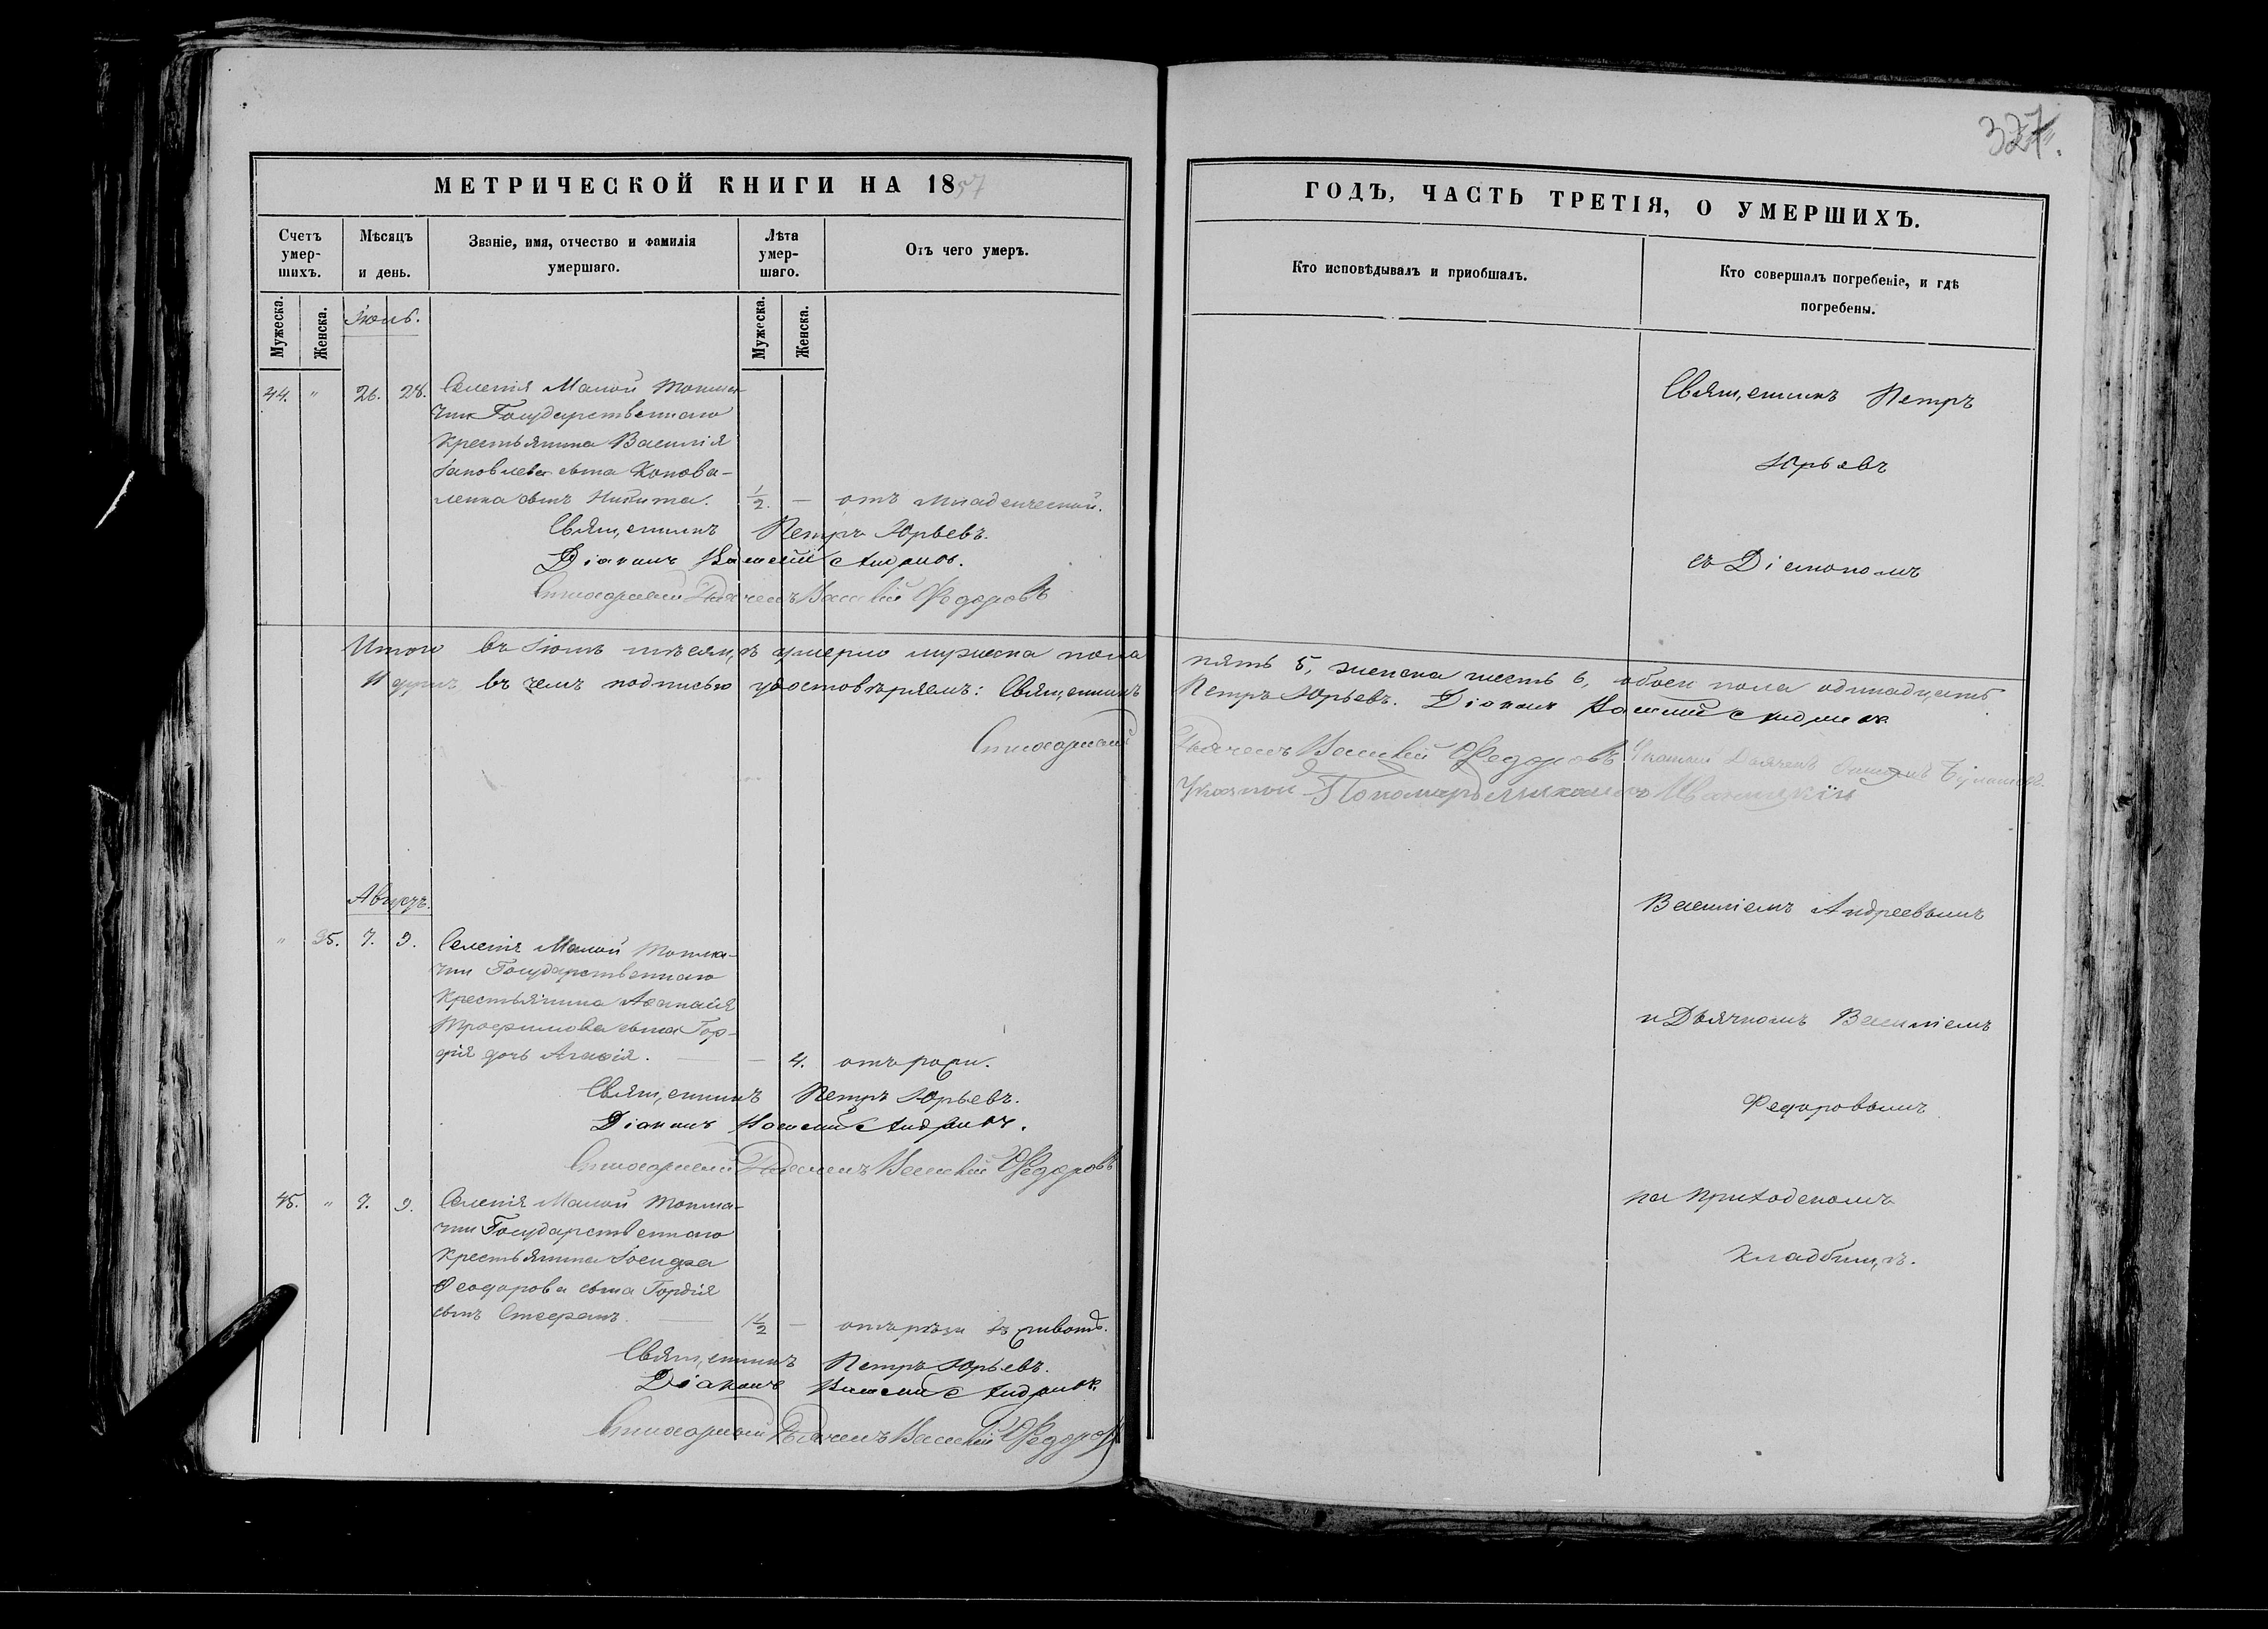 327.
МЕТРИЧЕСКОЙ КНИГИ НА 1857
ГОДЪ, ЧАСТЬ ТРЕТІЯ, О УМЕРШИХЪ.
Счетъ умер-шихъ.
Мѣсяцъ и день.
Званіе, имя, отчество и фамилія умершаго.
Лѣта умер-шаго.
Отъ чего умеръ.
Кто исповѣдывалъ и приобщалъ.
Кто совершалъ погребеніе, и гдѣ погребены.
Мужеска.
Женска.
Мужеска.
Женска.
Іюль.
44. " 26. 28. Селенія Малой Токма-
чки Государственнаго
Крестьянина Василія
Іаковлева сына Конова-
ленка сынъ Никита. 1/2. — отъ младенческой.
Священникъ Петръ Юрьевъ.
Діаконъ Василій Андреевъ.
Стихарный Дьячекъ Василій Ѳедоровъ
Итого въ Іюлѣ мѣсяцѣ умерло мужеска пола пять 5, женска шесть 6, обоего пола одинадцать
11 душъ въ чемъ подписью удостовѣряемъ: Священникъ Петръ Юрьевъ. Діаконъ Василій Андреевъ
Стихарный Дьячекъ Василій Ѳедоровъ Указный Дьячекъ
Указной Пономарь
Августъ.
" 35. 7. 9. Селенія Малой Токма-
чки Государственнаго
Крестьянина Аѳанасія
Трофимова сына Гор-
дія дочь Агафія. — — 4. отъ рожи.
Священникъ Петръ Юрьевъ.
Діаконъ Василій Андреевъ.
Стихарный Дьячекъ Василій Ѳедоровъ
45. " 7. 9. Селенія Малой Токма-
чки Государственнаго
Крестьянина Іосифа
Ѳеодорова сына Гордія
сынъ Стефанъ. — 1 1/2 — отъ рѣзи въ животѣ.
Священникъ Петръ Юрьевъ.
Діаконъ Василій Андреевъ.
Стихарный Дьячекъ Василій Ѳедоровъ
Священникъ Петръ
Юрьевъ
съ Діакономъ
Василіемъ Андреевымъ
и Дьячкомъ Василіемъ
Федоровымъ
на приходскомъ
кладбищѣ.